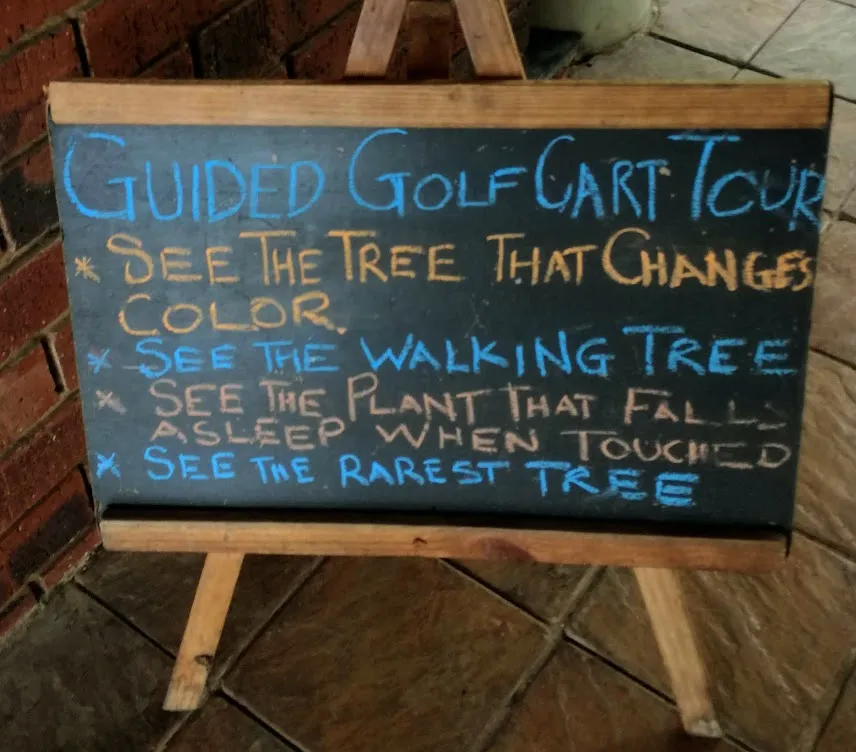 GUIDED GOLF CART TOUR
* SEE THE TREE THAT CHANGES
COLOR.
* SEE THE WALKING TREE
* SEE THE PLANT THAT FALLS
ASLEEP WHEN TOUCHED
* SEE THE RAREST TREE